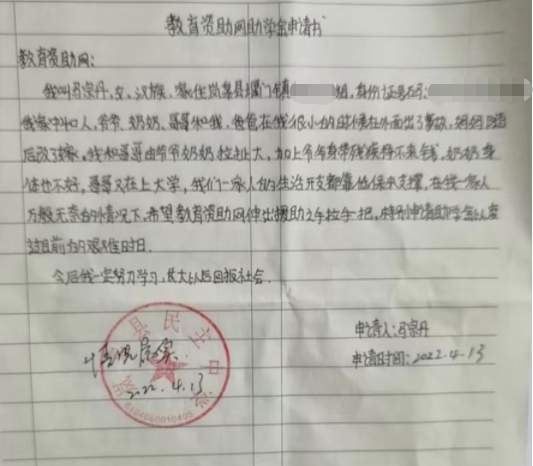 教育资助网助学金申请书
教育资助网：
我叫马宗丹，女，汉族，家住岚皋县 门镇 组，身份证号码：
我家中4口人，爷爷、奶奶、哥哥和我，爸爸在我很小的时候在外面出了事故，妈妈随
后改了嫁，我和哥哥由爷爷奶奶拉扯大，加上爷爷身带残疾挣不来钱，奶奶身
体也不好，哥哥又在上大学，我们一家人的生活开支都靠低保来支撑，在我一家人
万般无奈的情况下，希望教育资助网伸出援助之手拉我一把，特别申请助学金以度
过目前的艰难时日。
今后我一定努力学习，长大以后回报社会。
申请人：马宗丹
申请时间：2022.4.13
县民主中
情况属实.
2022.4.13